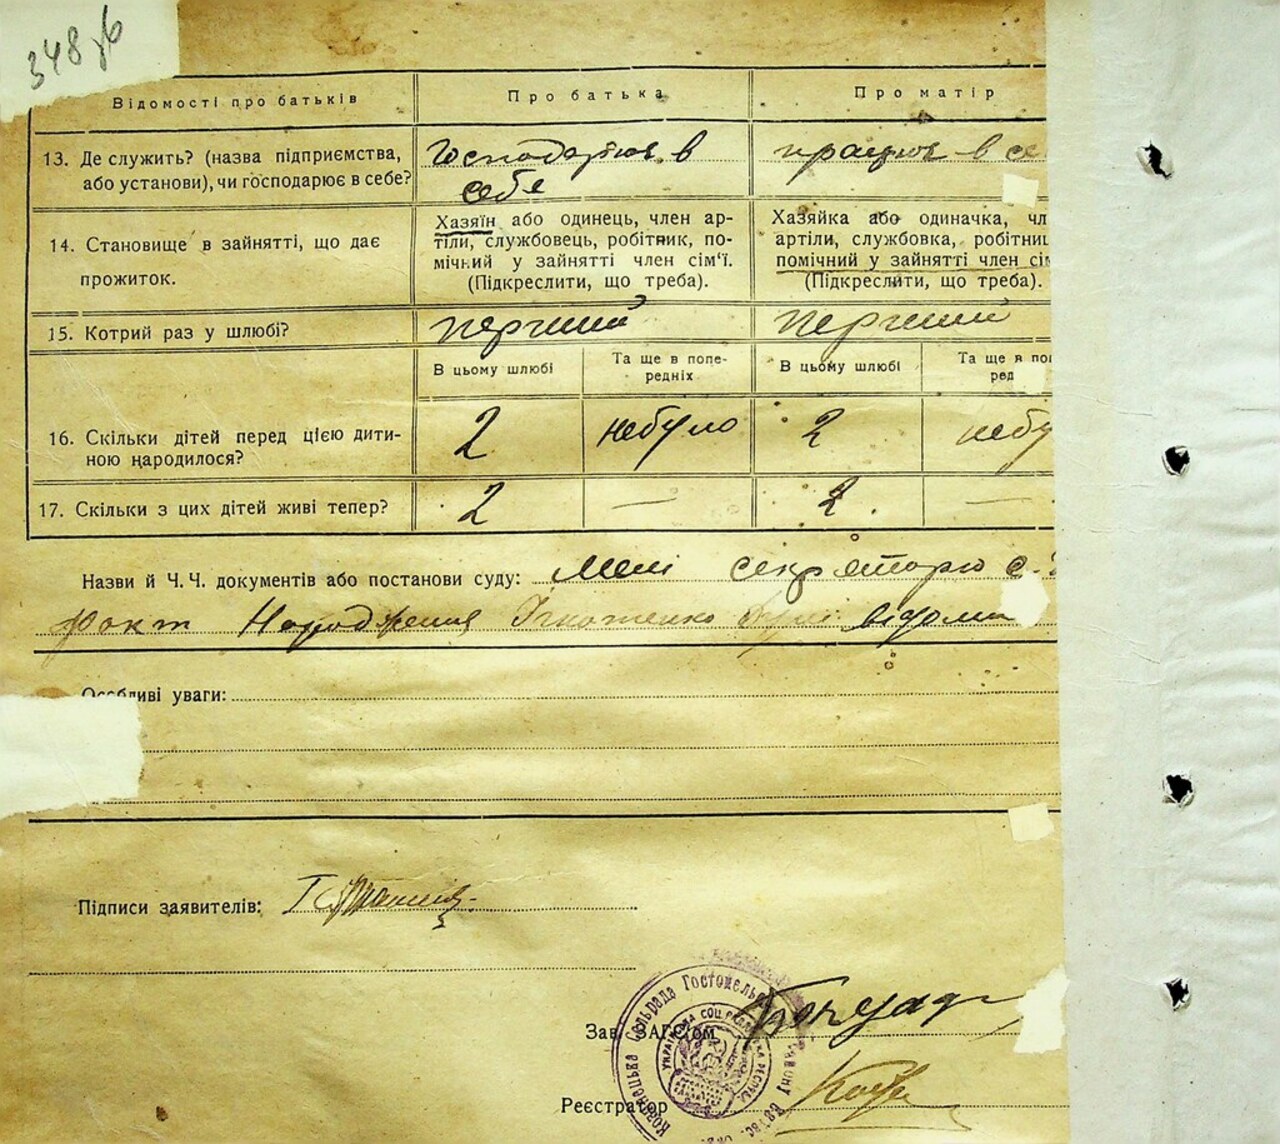 348 зб
Відомості про батьків
Про батька
Про матір
13. Де служить? (назва підприємства, або установи), чи господарює в себе?
Господарює в себе
працює в се
14. Становище в зайнятті, що дає прожиток.
Хазяїн або одинець, член ар-
тіли, службовець, робітник, по-
мічний у зайнятті член сім'ї.
(Підкреслити, що треба).
Хазяйка або одиначка, чл
артіли, службовка, робітниц
помічний у зайнятті член сім
(Підкреслити, що треба).
15. Котрий раз у шлюбі?
перший
перший
В цьому шлюбі
Та ще в попе-
редніх
В цьому шлюбі
Та ще в поп
ред
16. Скільки дітей перед цією дити-
ною народилося?
2
небуло
2
небу
17. Скільки з цих дітей живі тепер?
2
—
2
—
Назви й Ч.Ч. документів або постанови суду: Мені секретарю с.
факт Народження відомий
Особливі уваги:
Підписи заявителів:
Сільрада Гостомельс
УКРАЇНСЬКА СОЦ. РАД
Зав. ЗАГС'ом
Реєстратор